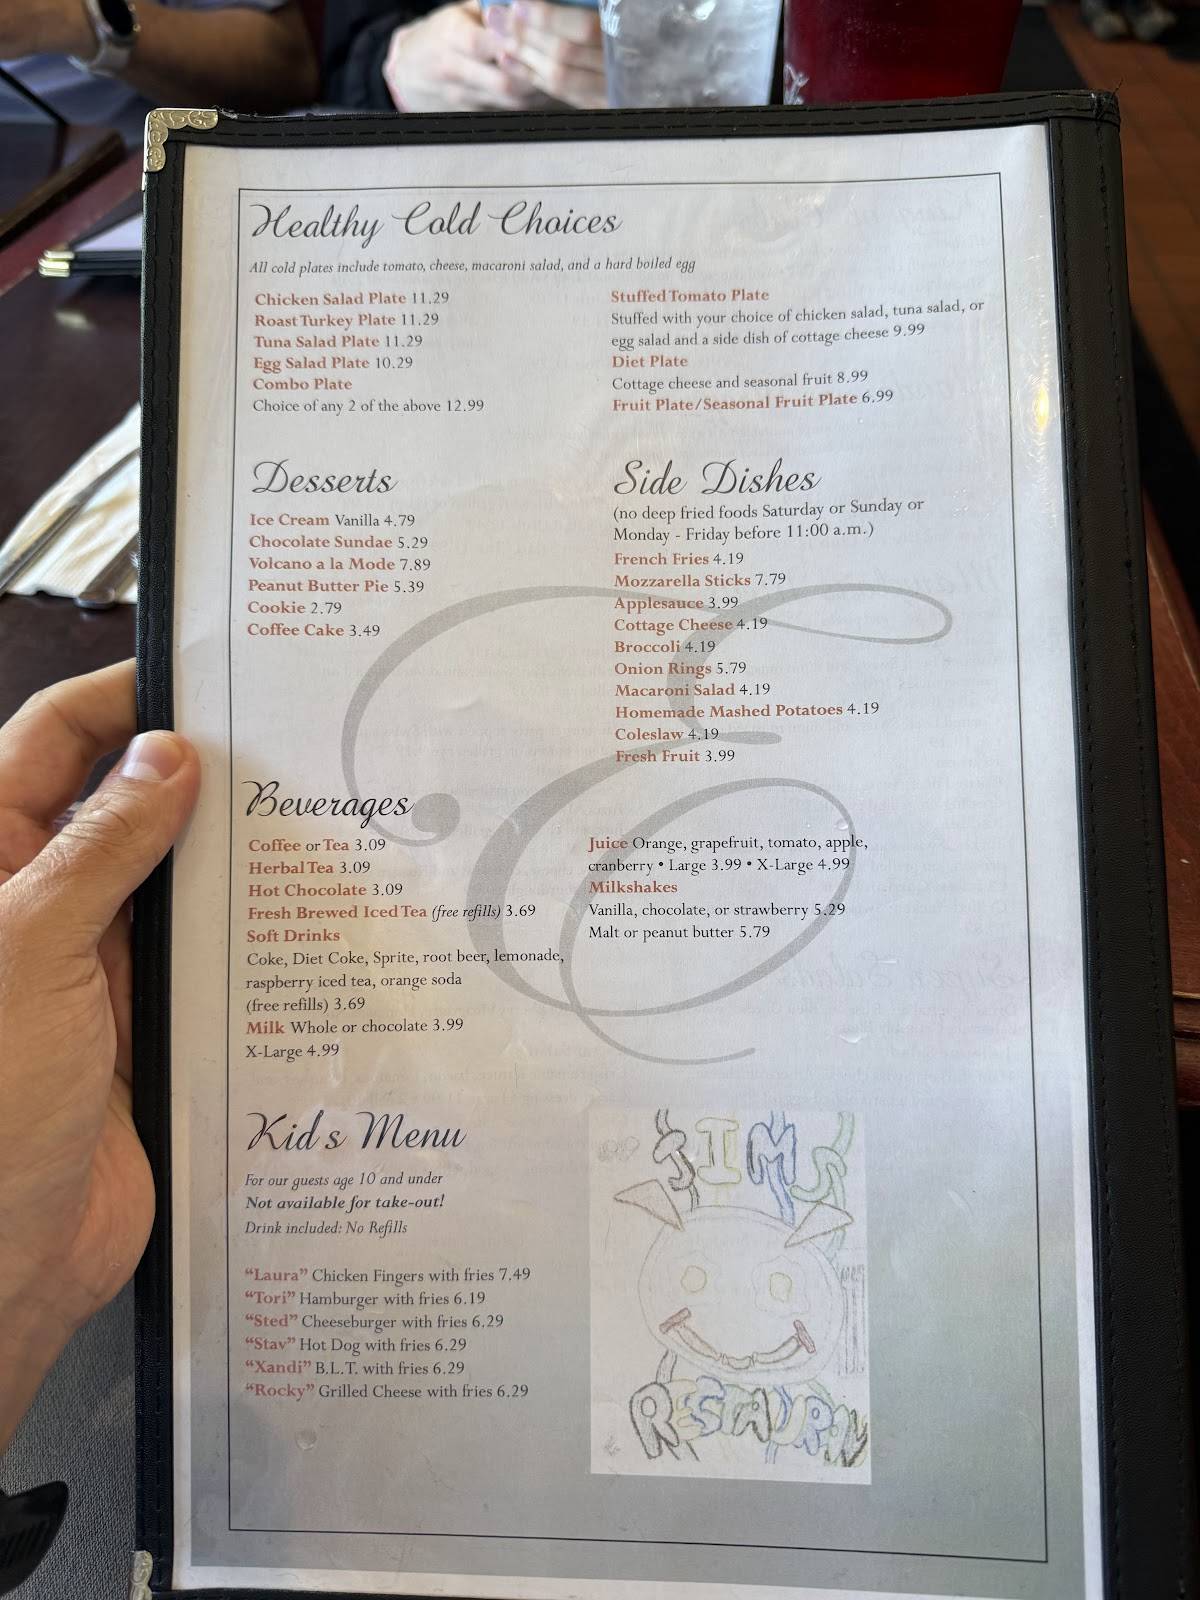 Healthy Cold Choices
All cold plates include tomato, cheese, macaroni salad, and a hard boiled egg
Chicken Salad Plate 11.29
Roast Turkey Plate 11.29
Tuna Salad Plate 11.29
Egg Salad Plate 10.29
Combo Plate
Choice of any 2 of the above 12.99
Stuffed Tomato Plate
Stuffed with your choice of chicken salad, tuna salad, or
egg salad and a side dish of cottage cheese 9.99
Diet Plate
Cottage cheese and seasonal fruit 8.99
Fruit Plate/Seasonal Fruit Plate 6.99
Desserts
Ice Cream Vanilla 4.79
Chocolate Sundae 5.29
Volcano a la Mode 7.89
Peanut Butter Pie 5.39
Cookie 2.79
Coffee Cake 3.49
Side Dishes
(no deep fried foods Saturday or Sunday or
Monday - Friday before 11:00 a.m.)
French Fries 4.19
Mozzarella Sticks 7.79
Applesauce 3.99
Cottage Cheese 4.19
Broccoli 4.19
Onion Rings 5.79
Macaroni Salad 4.19
Homemade Mashed Potatoes 4.19
Coleslaw 4.19
Fresh Fruit 3.99
Beverages
Coffee or Tea 3.09
Herbal Tea 3.09
Hot Chocolate 3.09
Fresh Brewed Iced Tea (free refills) 3.69
Soft Drinks
Coke, Diet Coke, Sprite, root beer, lemonade,
raspberry iced tea, orange soda
(free refills) 3.69
Milk Whole or chocolate 3.99
X-Large 4.99
Juice Orange, grapefruit, tomato, apple,
cranberry • Large 3.99 • X-Large 4.99
Milkshakes
Vanilla, chocolate, or strawberry 5.29
Malt or peanut butter 5.79
Kid's Menu
For our guests age 10 and under
Not available for take-out!
Drink included: No Refills
"Laura" Chicken Fingers with fries 7.49
"Tori" Hamburger with fries 6.19
"Sted" Cheeseburger with fries 6.29
"Stav" Hot Dog with fries 6.29
"Xandi" B.L.T. with fries 6.29
"Rocky" Grilled Cheese with fries 6.29
JIMS
RESTAURAN